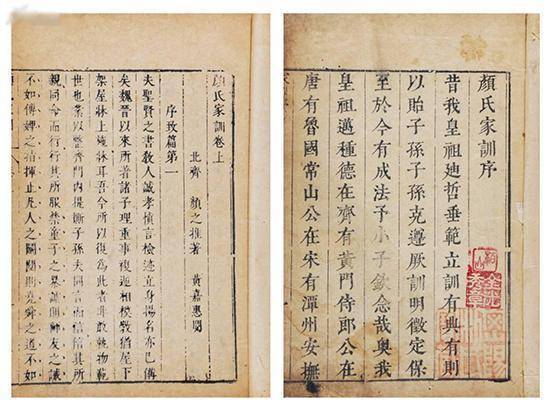 顏氏家訓序
昔我皇祖迪哲垂範立訓有典有則
以貽子孫子孫克遵厥訓明徵定保
至於今有成法予小子欽念哉奧我
皇祖邁種德在齊有黃門侍郎公在
唐有魯國常山公在宋有潭州安撫
顏氏家訓卷上
北齊 顏之推著 黃嘉惠閱
序致篇第一
夫聖賢之書教人誠孝慎言檢迹立身揚名亦已備
矣魏晉以來所著諸子理重事複遞相模斆猶屋下
架屋牀上施牀耳吾今所以復為此者非敢軌物範
世也業以整齊門內提撕子孫夫同言而信信其所
親同命而行行其所服禁童子之暴謔則師友之誡
不如傅婢之指揮止凡人之鬬鬩則堯舜之道不如